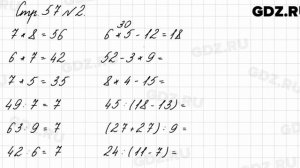 Стр. 57 №2.
GDZ.RU
7 * 8 = 56
6 * 7 = 42
7 * 5 = 35
49 : 7 = 7
63 : 9 = 7
42 : 6 = 7
30
6 * 5 - 12 = 18
52 - 3 * 9 =
8 * 4 - 15 =
45 : (18 - 13) =
(27 + 27) : 9 =
24 : (11 - 7) =